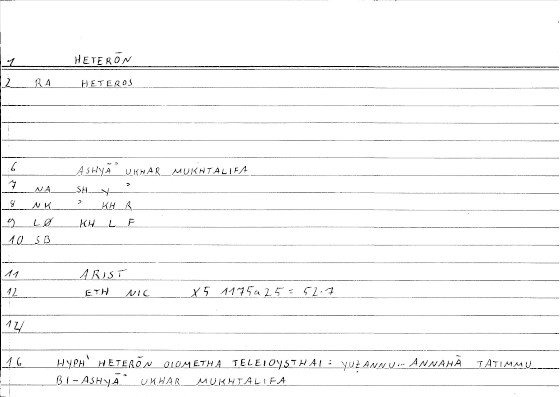 1 HETERŌN
2 RA HETEROS
6 ASHYĀʾ UKHAR MUKHTALIFA
7 NA SH Y ʾ
8 NK ʾ KH R
9 LØ KH L F
10 SB
11 ARIST
12 ETH NIC X5 1175a25 = 52.7
14
16 HYPHʾ HETERŌN OIOMETHA TELEIOYSTHAI : YUẒANNU.. ANNAHĀ TATIMMU
BI-ASHYĀʾ UKHAR MUKHTALIFA